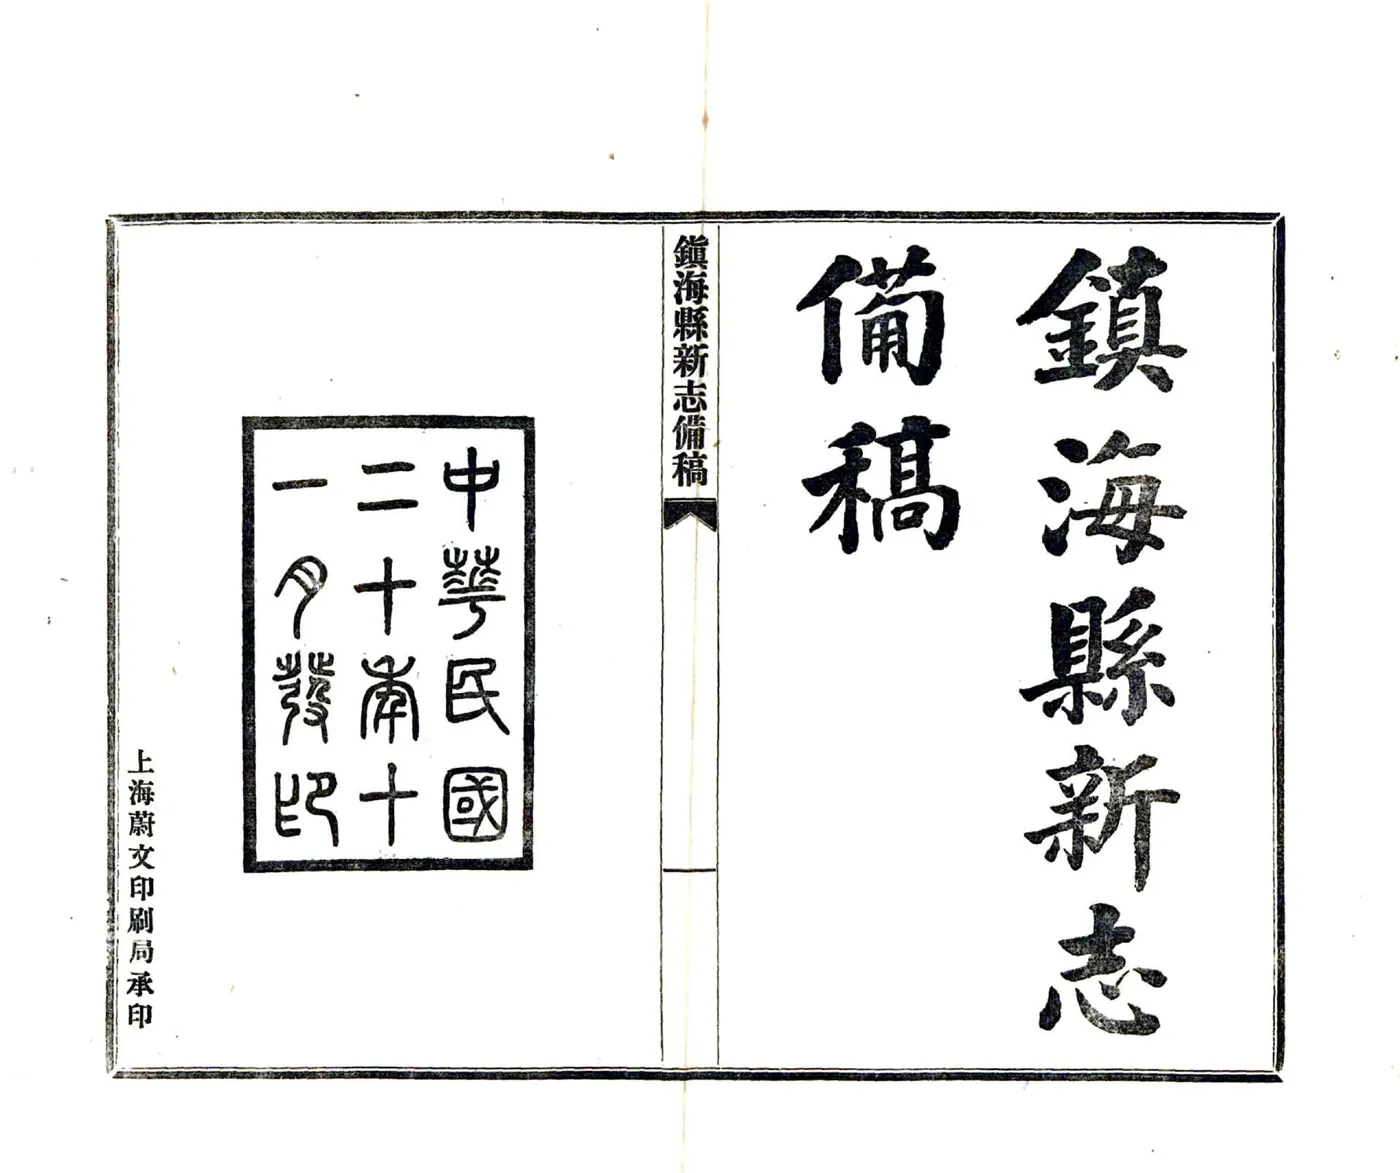 鎮海縣新志
備稿
鎮海縣新志備稿
中華民國
二十年十
一月發印
上海蔚文印刷局承印